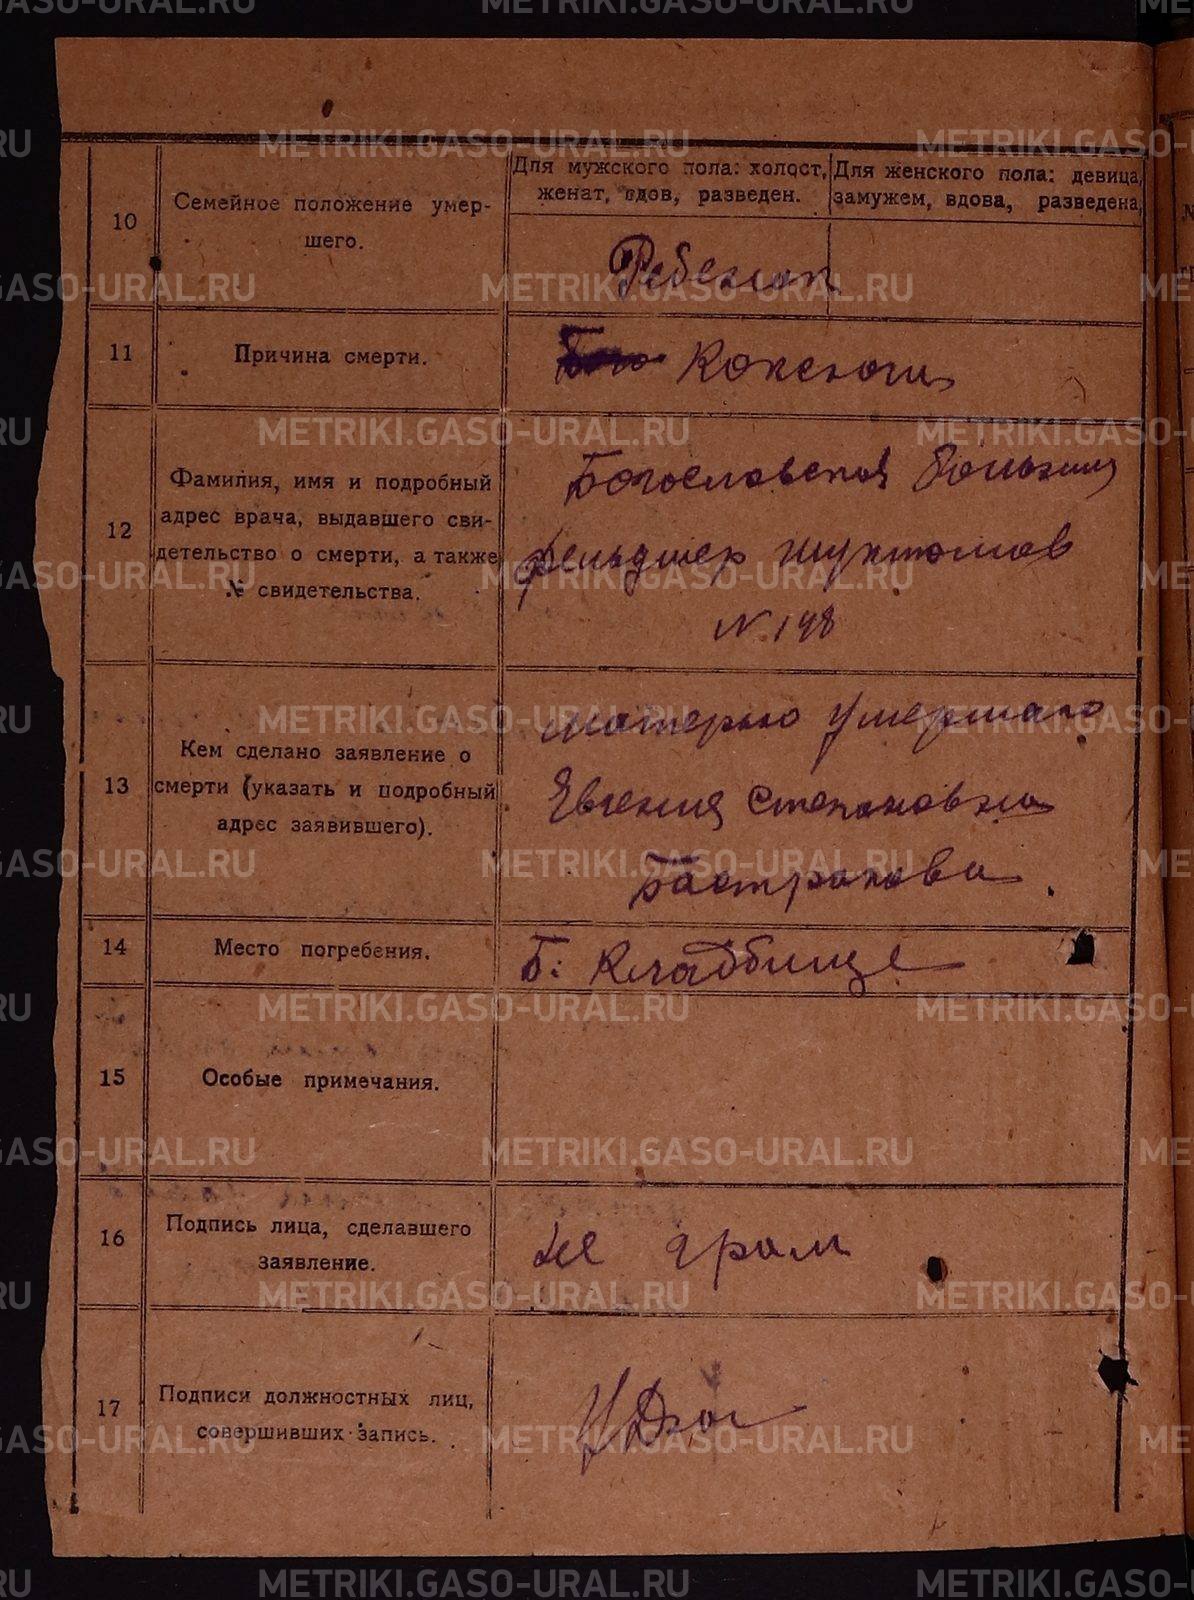 10
Семейное положение умер-
шего.
Для мужского пола: холост,
женат, вдов, разведен.
Для женского пола: девица,
замужем, вдова, разведена,
Ребенок
11
Причина смерти.
12
Фамилия, имя и подробный
адрес врача, выдавшего сви-
детельство о смерти, а также
№ свидетельства.
Богословская
фельдшер
N. 148
13
Кем сделано заявление о
смерти (указать и подробный
адрес заявившего).
матерью умершаго
Евгения Степановна
Бастракова.
14
Место погребения.
Б: Кладбище
15
Особые примечания.
16
Подпись лица, сделавшего
заявление.
не грам
17
Подписи должностных лиц,
совершивших запись.
METRIKI.GASO-URAL.RU